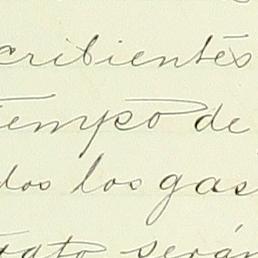 cribientes
tiempo de
dos los gas
trato serán